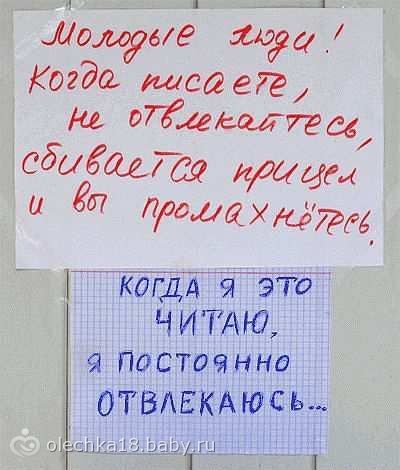 Молодые люди!
Когда писаете,
не отвлекайтесь,
сбивается прицел
и вы промахнётесь.
КОГДА Я ЭТО
ЧИТАЮ,
Я ПОСТОЯННО
ОТВЛЕКАЮСЬ...
olechka18.baby.ru